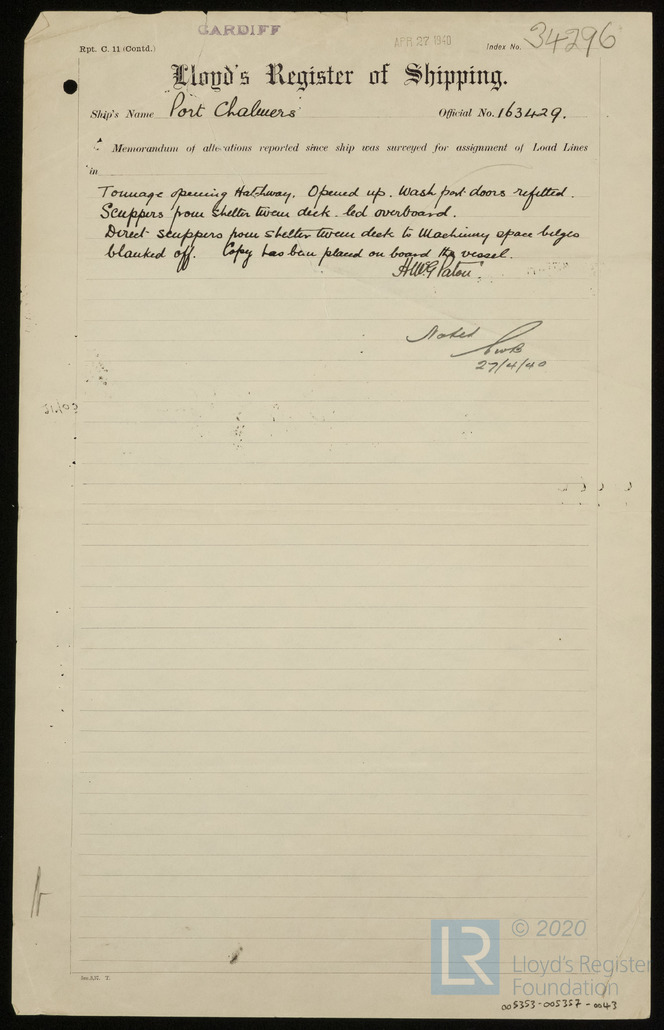 CARDIFF
APR 27 1940
Rpt. C. 11 (Contd.)
Index No. 34296
Lloyd's Register of Shipping.
Ship's Name Port Chalmers
Official No. 163429.
Memorandum of alterations reported since ship was surveyed for assignment of Load Lines
in
Tonnage opening Hatchway. Opened up. Wash port doors refitted.
Scuppers from shelter tween deck led overboard.
Direct scuppers from shelter tween deck to Machinery space bilges
blanked off. Copy has been placed on board the vessel.
Paton.
Noted
27/4/40
© 2020
LR
Lloyd's Register
Foundation
005353-005357-0043